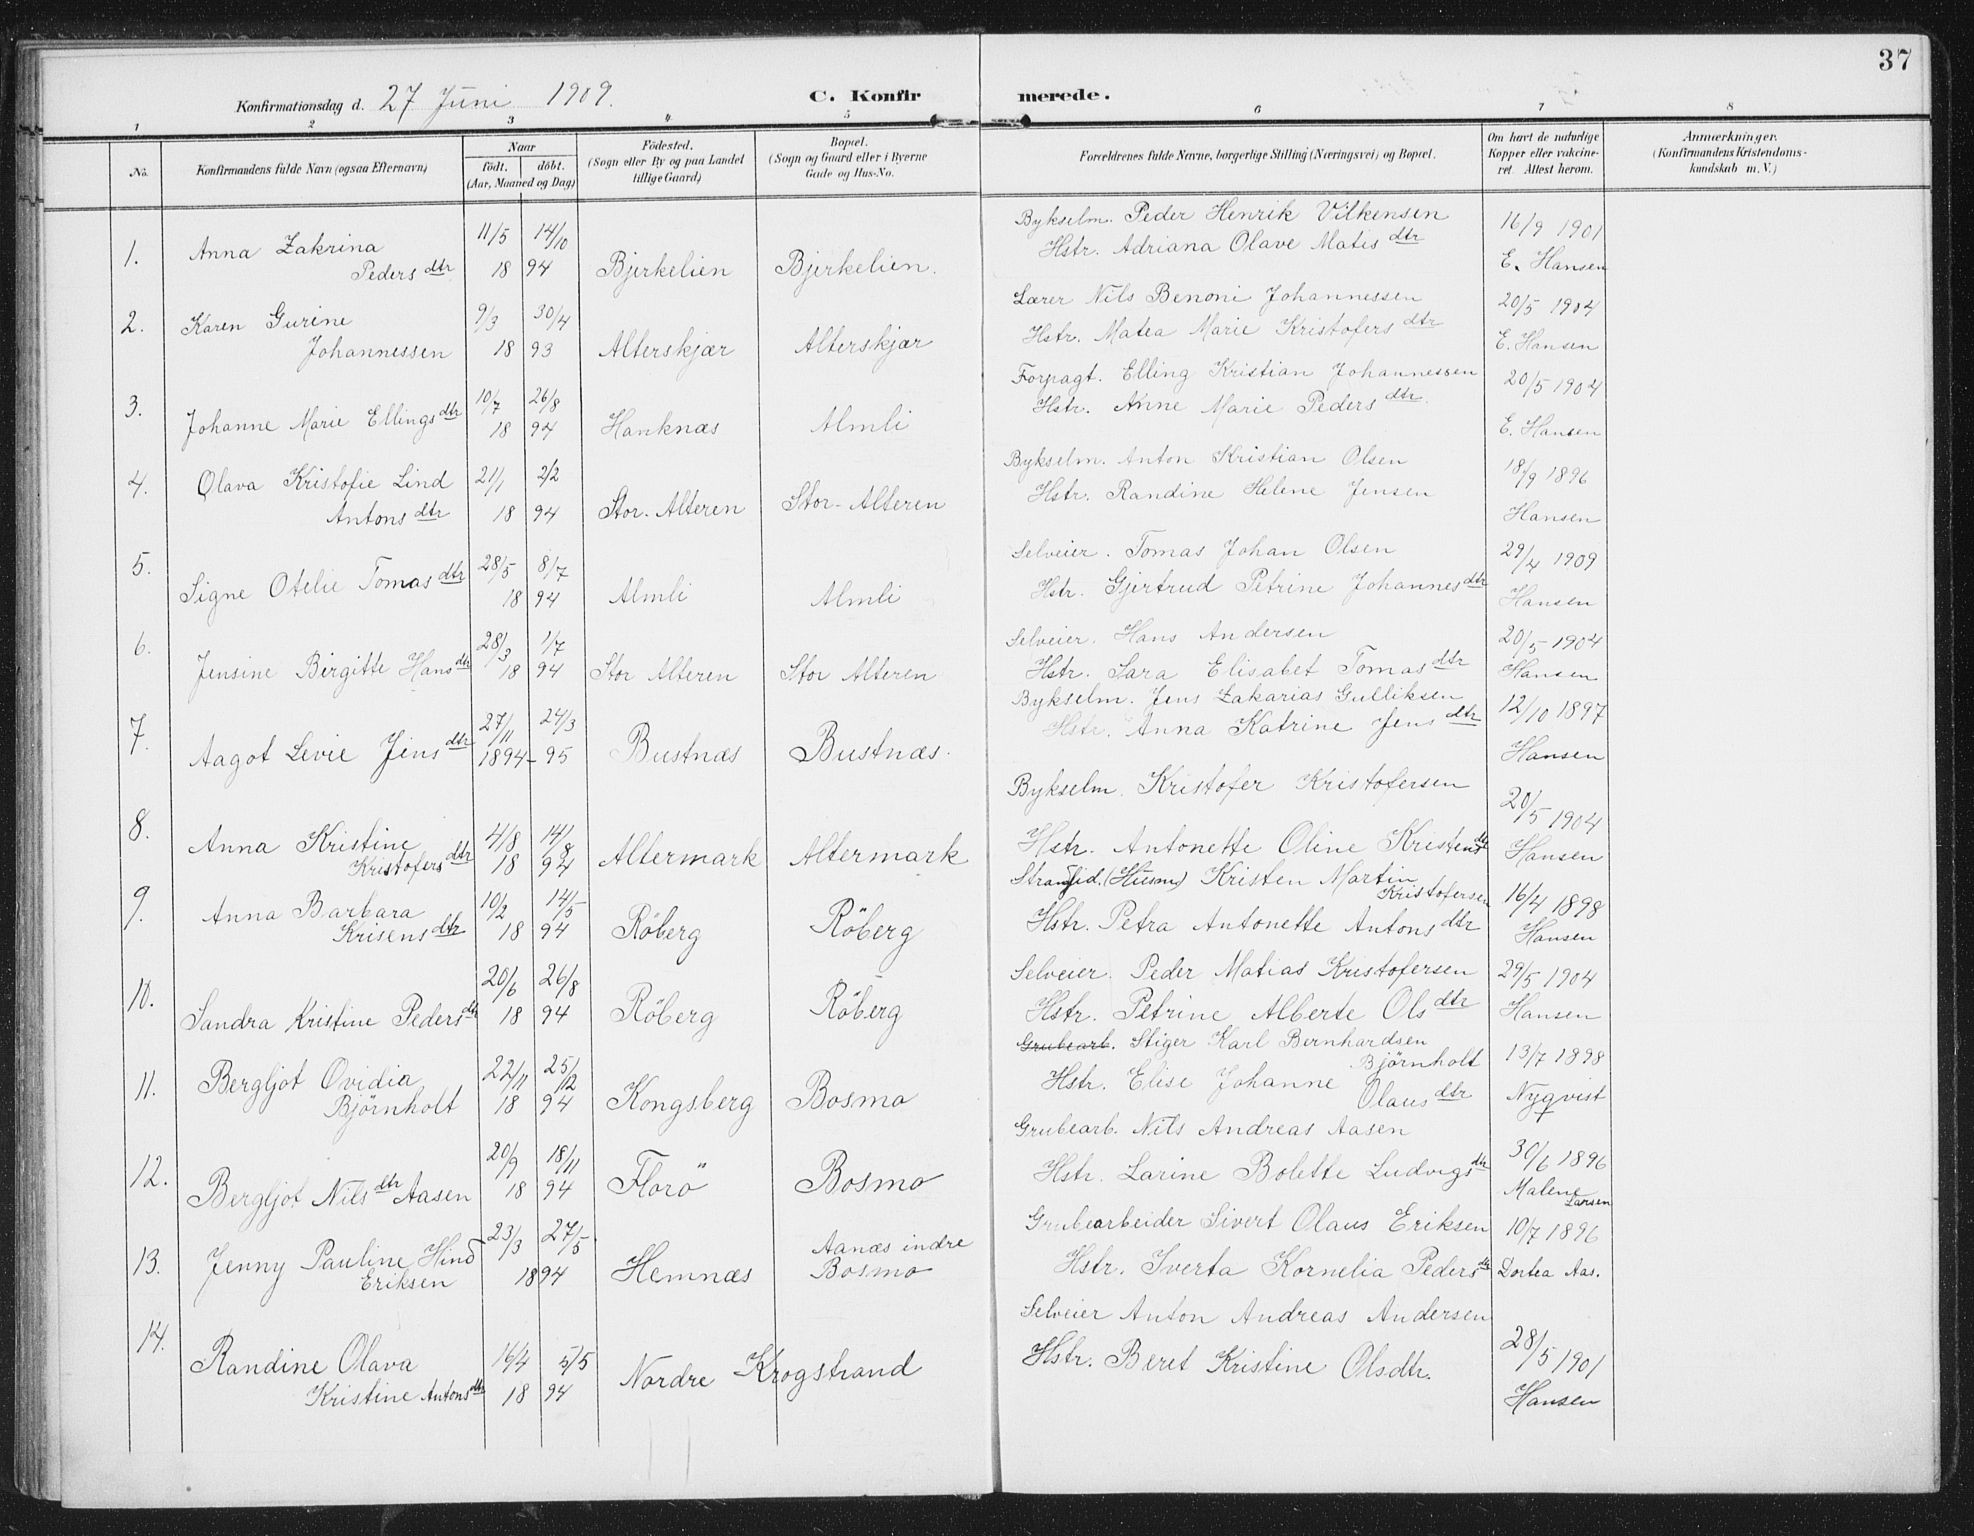 37
Konfirmationsdag d. 27 Juni 1909.
C. Konfirmerede.
1 2 3 4 5 6 7 8
No.
Konfirmandens fulde Navn (ogsaa Efternavn)
Naar
födt. döbt.
(Aar, Maaned og Dag)
Födested.
(Sogn eller By og paa Landet
tillige Gaard)
Bopæl.
(Sogn og Gaard eller i Byerne
Gade og Hus-No.
Forældrenes fulde Navne, borgerlige Stilling (Næringsvei) og Bopæl.
Om havt de naturlige
Kopper eller vakcine-
ret. Attest herom.
Anmærkninger.
(Konfirmandens Kristendoms-
kundskab m. V.)
1. Anna Zakrina 11/5 14/10 Bykselm. Peder Henrik Vilkensen 16/9 1901
Pedersdtr 18 94 Bjerkelien Bjerkelien. Hstr. Adriana Olave Matisdtr E. Hansen
2. Karen Gurine 9/3 30/4 Lærer Nils Benoni Johannessen 20/5 1904
Johannessen 18 93 Alterskjær Alterskjær Hstr. Matea Marie Kristofersdtr E. Hansen
3. Johanne Marie Ellingsdtr 10/7 26/8 Forpagt. Elling Kristian Johannessen 20/5 1904
18 94 Hanknæs Almli Hstr. Anne Marie Pedersdtr. E. Hansen
4. Olava Kristofie Lind 21/1 2/2 Bykselm. Anton Kristian Olsen 18/9 1896
Antonsdtr 18 94 Stor-Alteren Stor-Alteren Hstr. Randine Helene Jensen Hansen
5. Signe Otelie Tomasdtr 28/5 8/7 Selveier. Tomas Johan Olsen 29/4 1909
18 94 Almli Almli Hstr. Gjertrud Petrine Johannesdtr Hansen
6. Jensine Birgitte Hansdtr 28/3 1/7 Selveier. Hans Andersen 20/5 1904
18 94 Stor Alteren Stor Alteren Hstr. Sara Elisabet Tomasdtr Hansen
7. Aagot Levie Jensdtr 27/11 24/3 Bykselm. Jens Zakarias Gulliksen 12/10 1897
1894- 95 Bustnæs Bustnæs. Hstr. Anna Katrine Jensdtr Hansen
8. Anna Kristine 4/8 14/8 Bykselm. Kristofer Kristofersen 20/5 1904
Kristofersdtr 18 94 Altermark Altermark Hstr. Antonette Oline Kristensdtr Hansen
9. Anna Barbara 10/2 14/5 Strandsid. (Husm) Kristen Martin Kristofersen 16/4 1898
Krisensdtr 18 94 Röberg Röberg Hstr. Petra Antonette Antonsdtr Hansen
10. Sandra Kristine Pedersdtr 20/6 26/8 Selveier. Peder Matias Kristofersen 29/5 1904
18 94 Röberg Röberg Hstr. Petrine Alberte Olsdtr Hansen
11. Bergljot Ovidia 22/11 25/12 Grubearb. Stiger Karl Bernhardsen Björnholt 13/7 1898
Björnholt 18 94 Kongsberg Bosmo Hstr. Elise Johanne Olausdtr Nyqvist
12. Bergljot Nilsdtr Aasen 20/9 18/11 Grubearb. Nils Andreas Aasen 30/6 1896
18 94 Florö Bosmo Hstr. Larine Bolette Ludvigsdtr Malene Larsen
13. Jenny Pauline Hind 23/3 27/5 Aanæs indre Grubearbeider Sivert Olaus Eriksen 10/7 1896
Eriksen 1894 Hemnæs Bosmo Hstr. Iverta Kornelia Pedersdtr Dortea Aas.
14. Randine Olava 16/4 5/5 Nordre Krogstrand Selveier Anton Andreas Andersen 28/5 1901
Kristine Antonsdtr 18 94 Hstr. Beret Kristine Olsdtr. Hansen